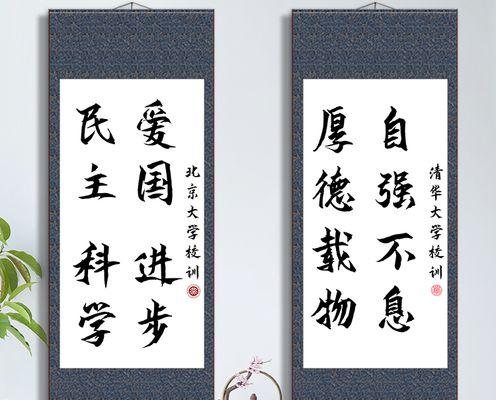 爱国 进步
民主 科学
北京大学校训
自强不息
厚德载物
清华大学校训